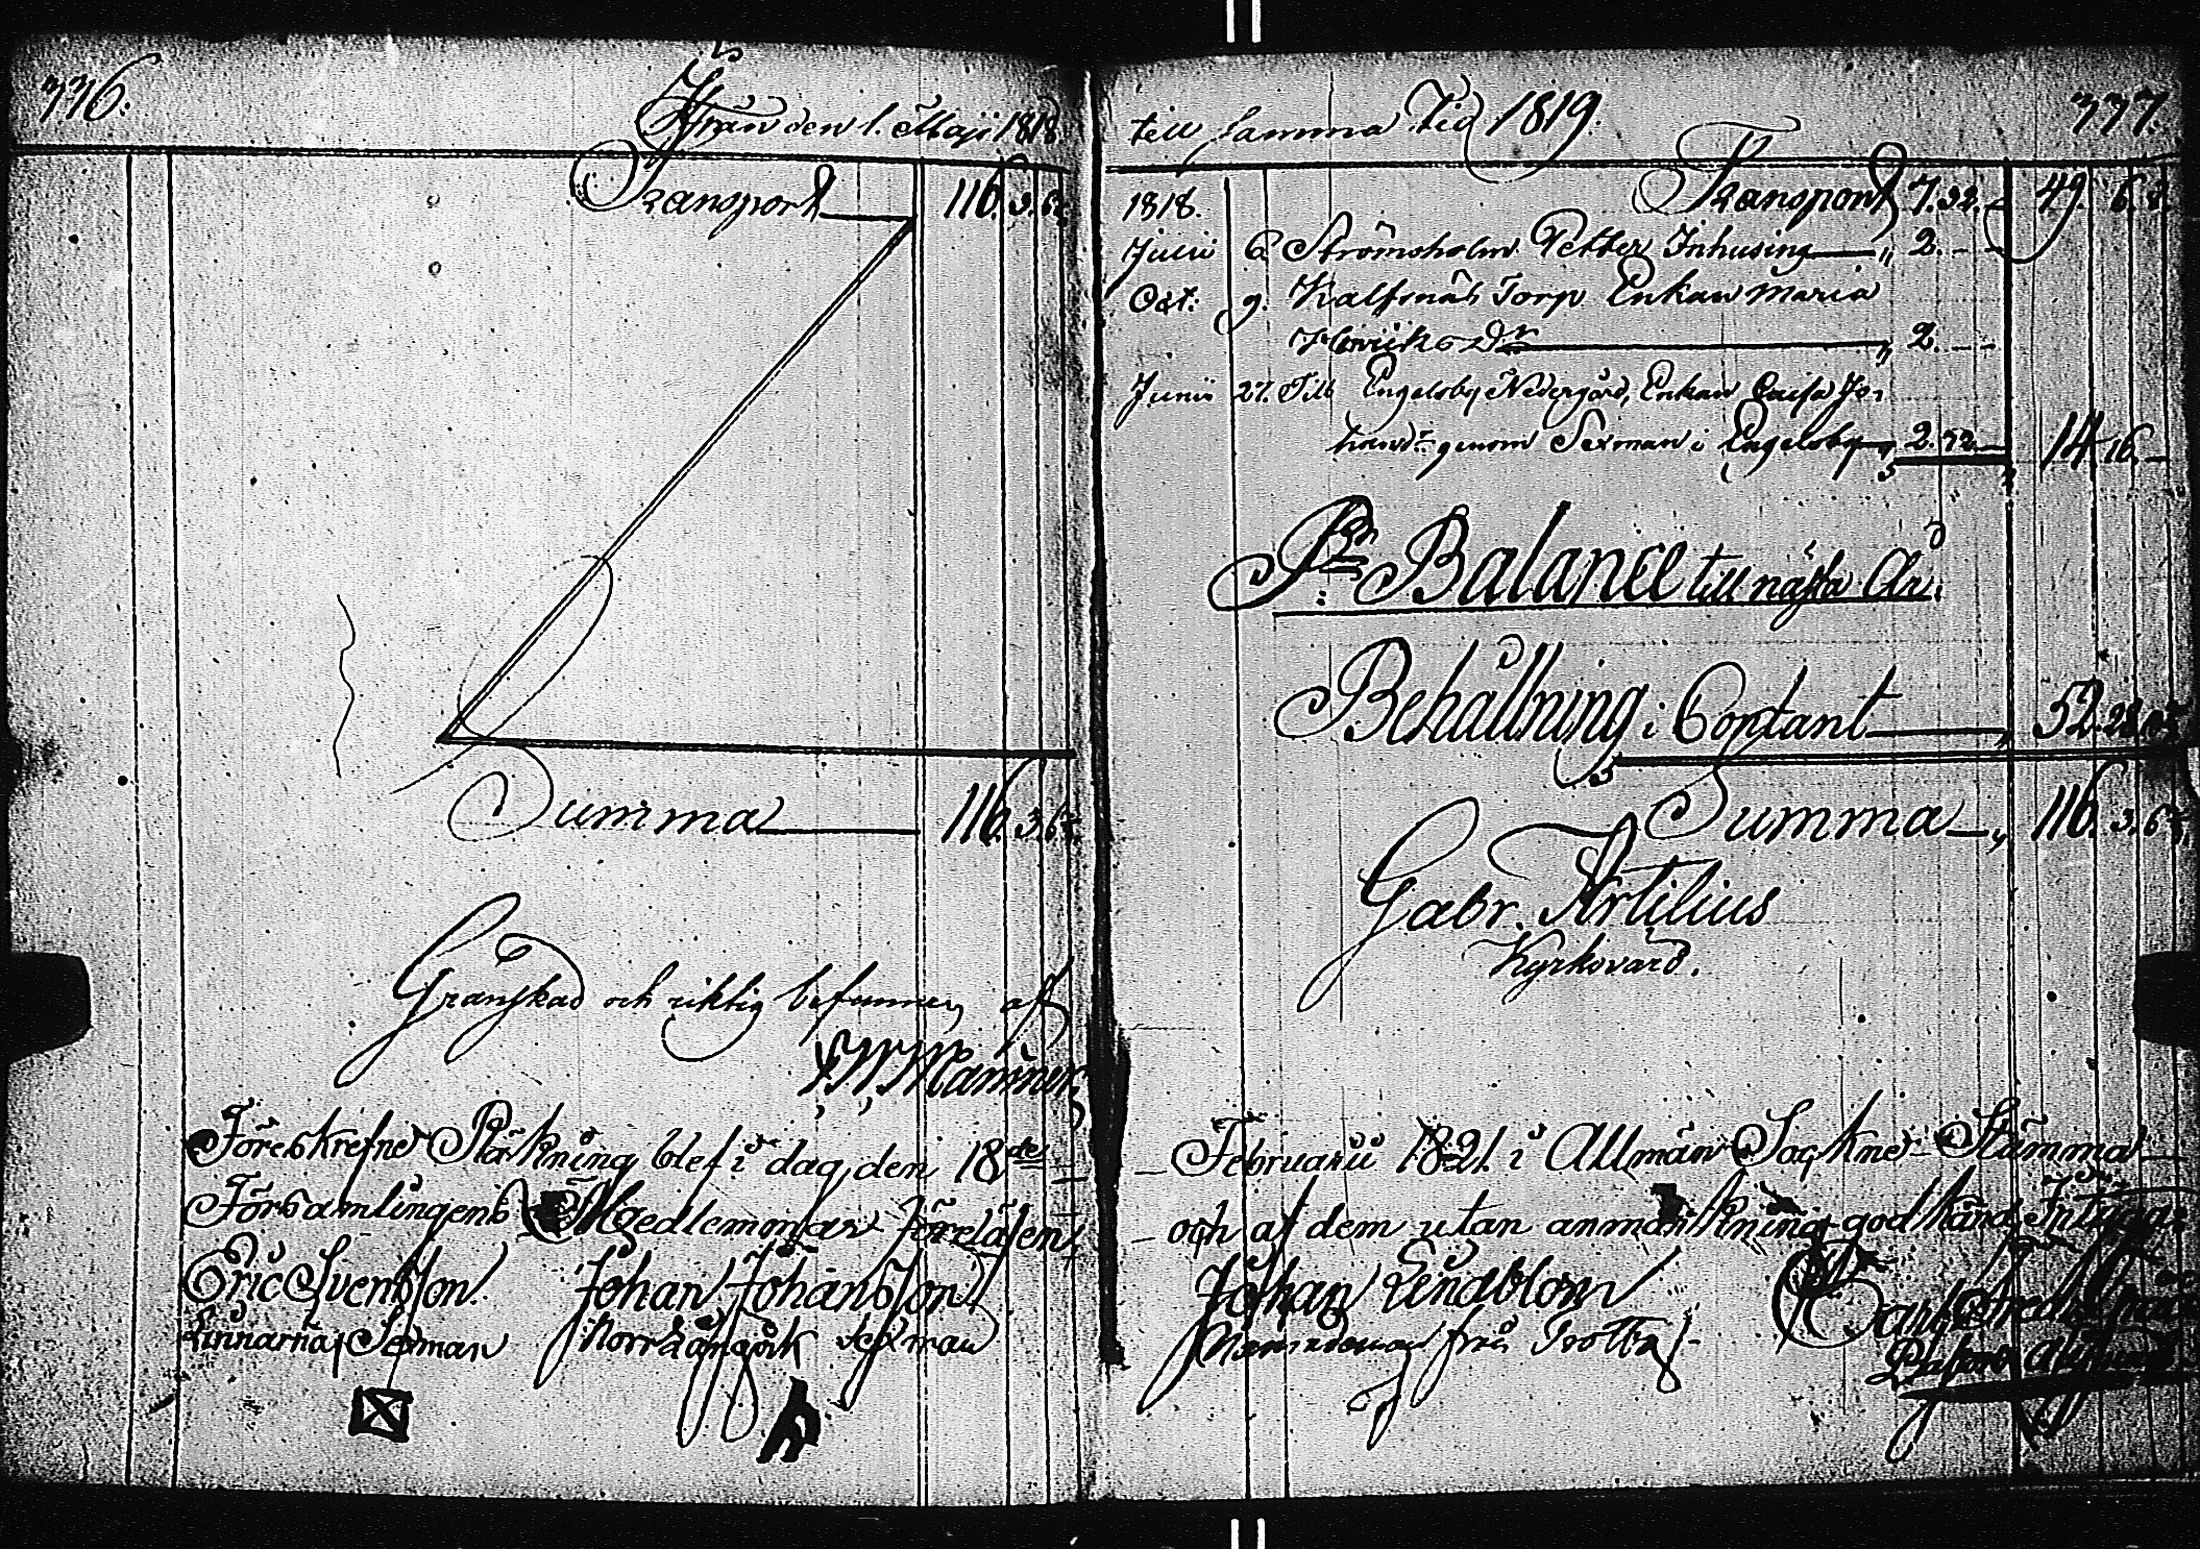 336.
Ifrån den 1. Maji 1818
Transport 116. 3. 6
Summa 116. 3. 6
Granskad och riktig befunnen af
Föreskrefne Räkning blef i dag den 18de
Församlingens Medlemmar föreläsen,
Eric Svensson. Johan Johansson
Linnarna, Sexman Norr Sexman
till samma Tid 1819. 337.
Transport 7. 32. 49. 6. 8
1818.
Julii 6 Strömsholm Petter Inhusing " 2. - -
Oct. 9. Kalfsnäs Torp Enkan Maria
Dr " 2. - -
Junii 27. Till Engelsby Nedergård, Enkan Caisa Jo-
hansdr genom Sexman i Engelsby " 2. 32. 14. 16. -
Pr Balance till nästa År.
Behållning i Contant " 52. 28.
Summa " 116. 3. 6
Gabr. Artilius
Kyrkovärd.
Februarii 1821. i Allmän Sockne-Stämma
och af dem utan anmärkning godkänd, Intygar
Johan Lindblom Carl
Nämndeman från